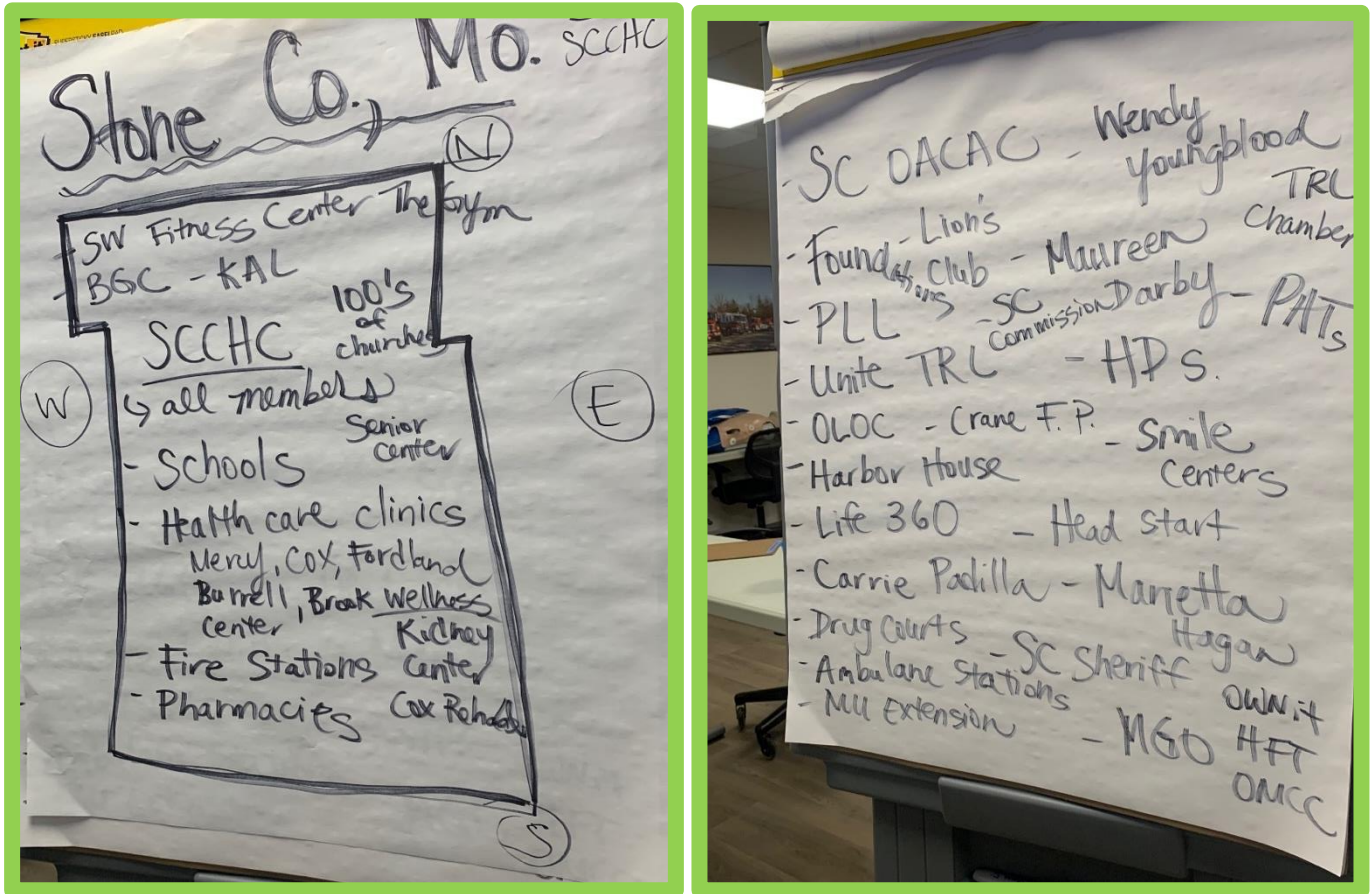 SCCHC
Stone Co., Mo.
N
- SW Fitness Center The Gym
- BGC - KAL
100's
of
churches
SCCHC
↳ all members
W
E
Senior
center
- Schools
- Health care clinics
Mercy, Cox, Fordland
Burrell, Brook Wellness
Center
Kidney
Center
- Fire Stations
- Pharmacies
Cox Rehab
S
- SC OACAC - Wendy
Youngblood
TRL
Chamber
- Foundations
- Lion's
Club
- Maureen
Darby
- PLL's
- SC
Commission
- PHTs
- Unite TRL
- HDs.
- OLOC - Crane F.P.
- Smile
Centers
- Harbor House
- Life 360 - Head Start
- Carrie Padilla - Marietta
Hagan
- Drug Courts
- SC Sheriff
- Ambulane Stations
- MU Extension
- MGO
OWN it
HFT
OMCC